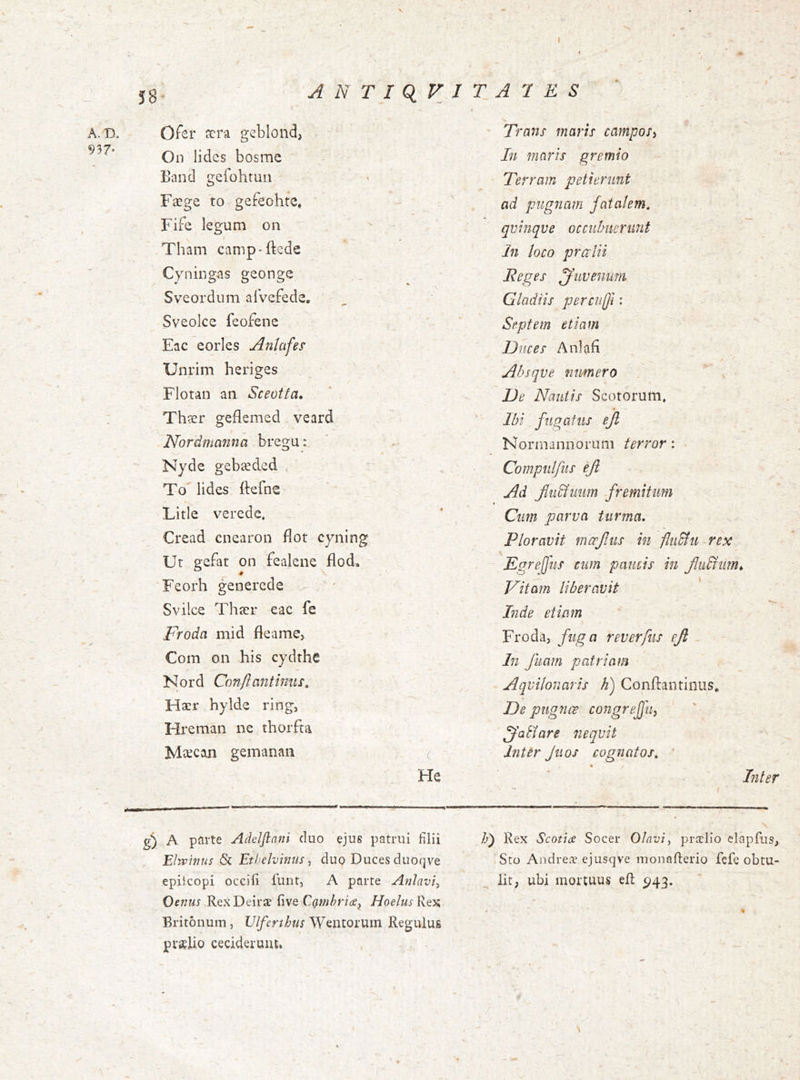 38 ANTIQVITATES
A. D.
937.
Ofer æra geblond,
On lides bosme
Band gesohtun
Fæge to gefeohte,
Fife legum on
Tham camp-stede
Cyningas geonge
Sveordum asvefede.
Sveolce feofene
Eac eorles Anlafes
Unrim heriges
Flotan an Sceotta.
Thær geflemed veard
Nordmanna bregu:
Nyde gebæded
To lides stefne
Litle verede.
Cread cnearon flot cyning
Ut gefat on fealene flod.
Feorh generede
Svilce Thær eac se
Froda mid fleame,
Com on his cydthe
Nord Constantinus.
Hær hylde ring,
Hreman ne thorfta
Mæcan gemanan
He
Trans maris campos,
In maris gremio
Terram petierunt
ad pugnam fatalem.
qvinqve occubuerunt
In loco prælii
Reges Juvenum
Gladiis percussi:
Septem etiam
Duces Anlafi
Absqve numero
De Nautis Scotorum.
Ibi fugatus est
Normannorum terror:
Compulsus est
Ad fluctuum fremitum
Cum parva turma.
Ploravit mæstus in fluctu rex
Egressus cum paucis in fluctum.
Vitam liberavit
Inde etiam
Froda, fuga reversus est
In suam patriam
Aqvilonaris h) Constantinus.
De pugnæ congressu,
Jactare nequit
Inter suos cognatos.
Inter
g) A parte Adelstani duo ejus patrui filii
Elwinus & Ethelvinus, duo Duces duoqve
episcopi occisi sunt, A parte Anlavi,
Oenus Rex Deiræ sive Cambriæ, Hoelus Rex
Britonum, Ulferthus Wentorum Regulus
prælio ceciderunt.
h) Rex Scotiæ Socer Olavi, prælio elapsus,
Sto Andreæ ejusqve monasterio sese obtu-
lit, ubi mortuus est 943.